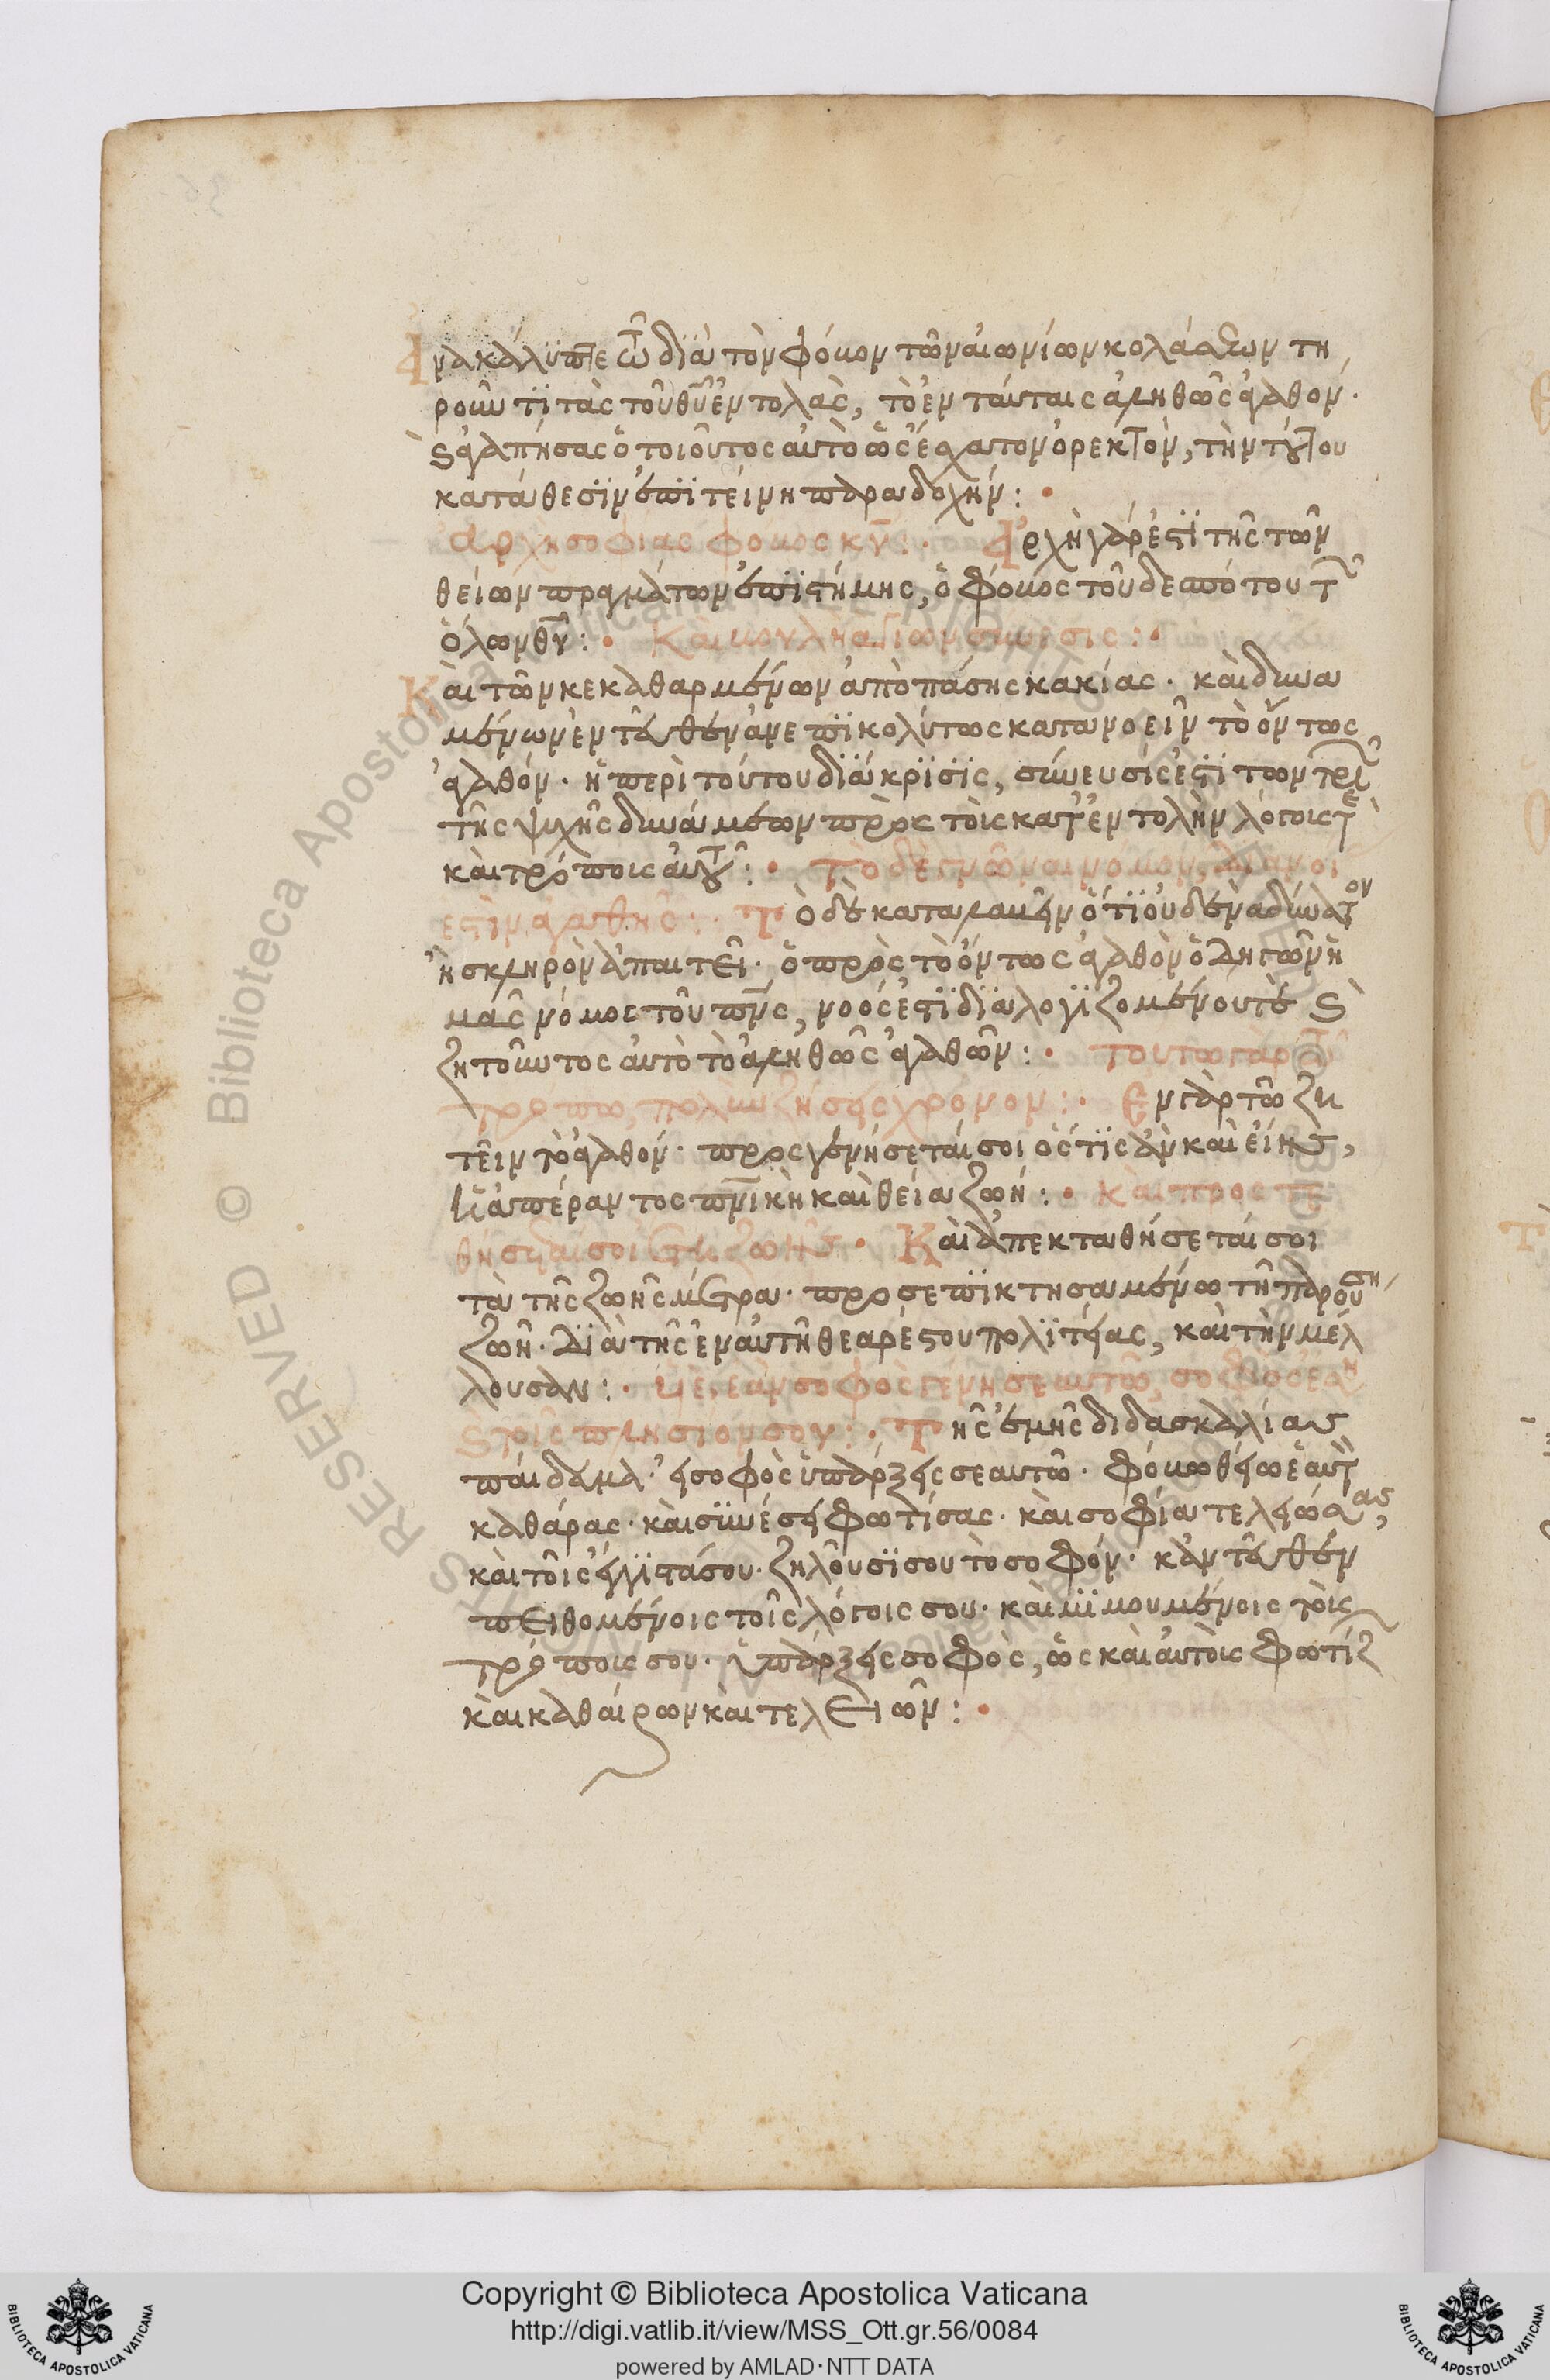 Ἀνακαλύπτεται τῶ διὰ τὸν φόβον τῶν αἰωνίων κολάσεων τη
ροῦντι τὰς τοῦ θυ ἐντολὰς, τὸ ἐν ταύταις ἀληθῶς ἀγαθόν.
ἀγαπήσας ὁ τοιοῦτος αὐτὸ ὡς ἔσχατον ὀρεκτὸν, τὴν τούτου
κατάθεσιν ἐπιτείνη παραδοχήν :
Ἀρχὴ σοφίας φόβος κυ : Ἀρχὴ γάρ ἐστι τῆς τῶν
θείων πραγμάτων ἐπιστήμης, ὁ φόβος τοῦ δεσπότου τῶν
ὅλων θυ : Καὶ βουλὴ ἁγίων σύνεσις :
Καὶ τῶν κεκαθαρμένων ἀπὸ πάσης κακίας. καὶ δυνα
μένων ἐντεῦθεν ἀνεπικολύτως κατανοεῖν τὸ ὄντως
ἀγαθόν. ἡ περὶ τούτου διάκρισις, σύνευσίς ἐστι τῶν τριῶν
τῆς ψυχῆς δυνάμεων πρὸς τοῖς κατ' ἐντολὴν λόγοις τὲ
καὶ τρόποις αὐτοῦ : Τὸ δὲ γνῶναι νόμον, διανοί
ἐστὶν ἀγαθῆς : Τὸ δὲ καταλαβεῖν ὅτι οὐδὲν ἀδύνατον
ἢ σκληρὸν ἀπαιτεῖ. ὁ πρὸς τὸ ὄντως ἀγαθὸν ὁδηγῶν ἡ
μᾶς νόμος τοῦ πνς, νοός ἐστι διαλογιζομένου τὲ
ζητοῦντος αὐτὸ τὸ ἀληθῶς ἀγαθῶν : τούτω γὰρ τῶ
τρόπω πολὺν ζήσεις χρόνον : Ἐν γὰρ τῶ ζη
τεῖν τὸ ἀγαθόν. προσγενήσεταί σοι ὅστις ἂν καὶ εἴης,
ἡ ἀπέραντος πνικὴ καὶ θεία ζωή : καὶ προστε
θήσεταί σοι ἔτη ζωῆς Καὶ ἀπεκταθήσεταί σοι
τὰ τῆς ζωῆς μέτρα. προσεπικτησαμένω τῆ παρούση
ζωῆ. διὰ τῆς ἐν αὐτῆ θεαρέστου πολιτείας, καὶ τὴν μέλ
λουσαν : Υἱὲ, ἐὰν σοφὸς γένη σεαυτῶ, σοφὸς ἔση
τοῖς πλησίον σου : Τῆς ἐμῆς διδασκαλίας
παίδαμα. εἰ σοφὸς ὑπάρξεις σεαυτῶ. φόβω θείω ἑαυτὸν
καθάρας. καὶ συνέσει φωτίσας. καὶ σοφία τελειώσας,
καὶ τοῖς ἔγγιστά σου. ζηλοῦσι σου τὸ σοφόν. κἀντεῦθεν
πειθομένοις τοῖς λόγοις σου. καὶ μιμουμένοις τοῖς
τρόποις σου. ὑπάρξεις σοφὸς, ὡς καὶ αὐτοῖς φωτίζων
καὶ καθαίρων καὶ τελειῶν :
Copyright © Biblioteca Apostolica Vaticana
http://digi.vatlib.it/view/MSS_Ott.gr.56/0084
powered by AMLAD·NTT DATA